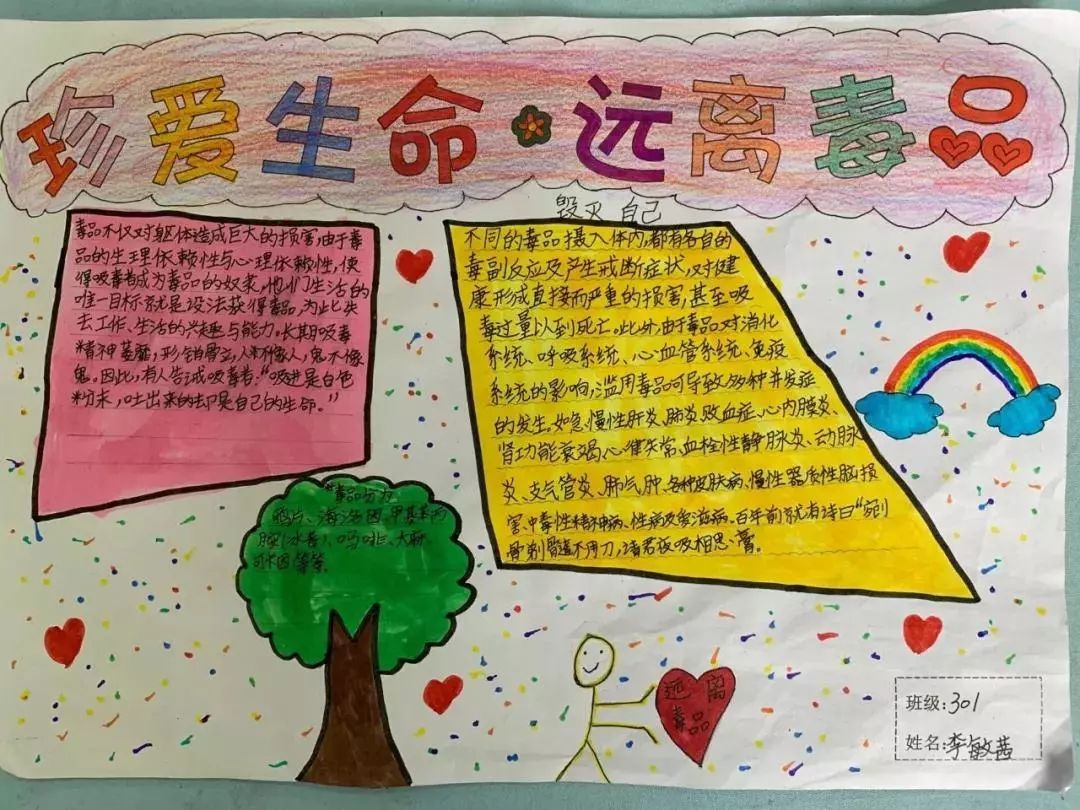 珍爱生命·远离毒品
毒品不仅对躯体造成巨大的损害,由于毒
品的生理依赖性与心理依赖性,使
得吸毒者成为毒品的奴隶,他们生活的
唯一目标就是设法获得毒品,为此失
去工作、生活的兴趣与能力。长期吸毒
精神萎靡,形销骨立,人不像人,鬼不像
鬼。因此,有人告诫吸毒者:“吸进是白色
粉末,吐出来的却是自己的生命。”
毁灭自己
不同的毒品摄入体内,都有各自的
毒副反应及产生戒断症状,对健
康形成直接而严重的损害,甚至吸
毒过量以到死亡。此外,由于毒品对消化
系统、呼吸系统、心血管系统、免疫
系统的影响,滥用毒品可导致多种并发症
的发生。如急、慢性肝炎、肺炎、败血症、心内膜炎、
肾功能衰竭、心律失常、血栓性静脉炎、动脉
炎、支气管炎、肺气肿、各种皮肤病、慢性器质性脑损
害中毒性精神病、性病及艾滋病。百年前就有诗曰“剜
骨剃髓不用刀,请君夜吸相思膏。
毒品分为
鸦片、海洛因、甲基苯丙
胺(冰毒)、吗啡、大麻、
可卡因等等。
远离
毒品
班级:301
姓名:李敏茜